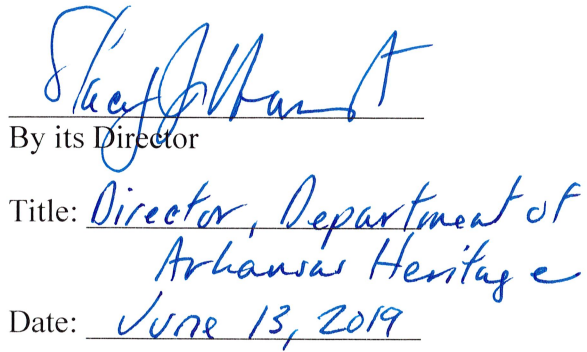 Stacy Hurst
By its Director
Title: Director, Department of
Arkansas Heritage
Date: June 13, 2019